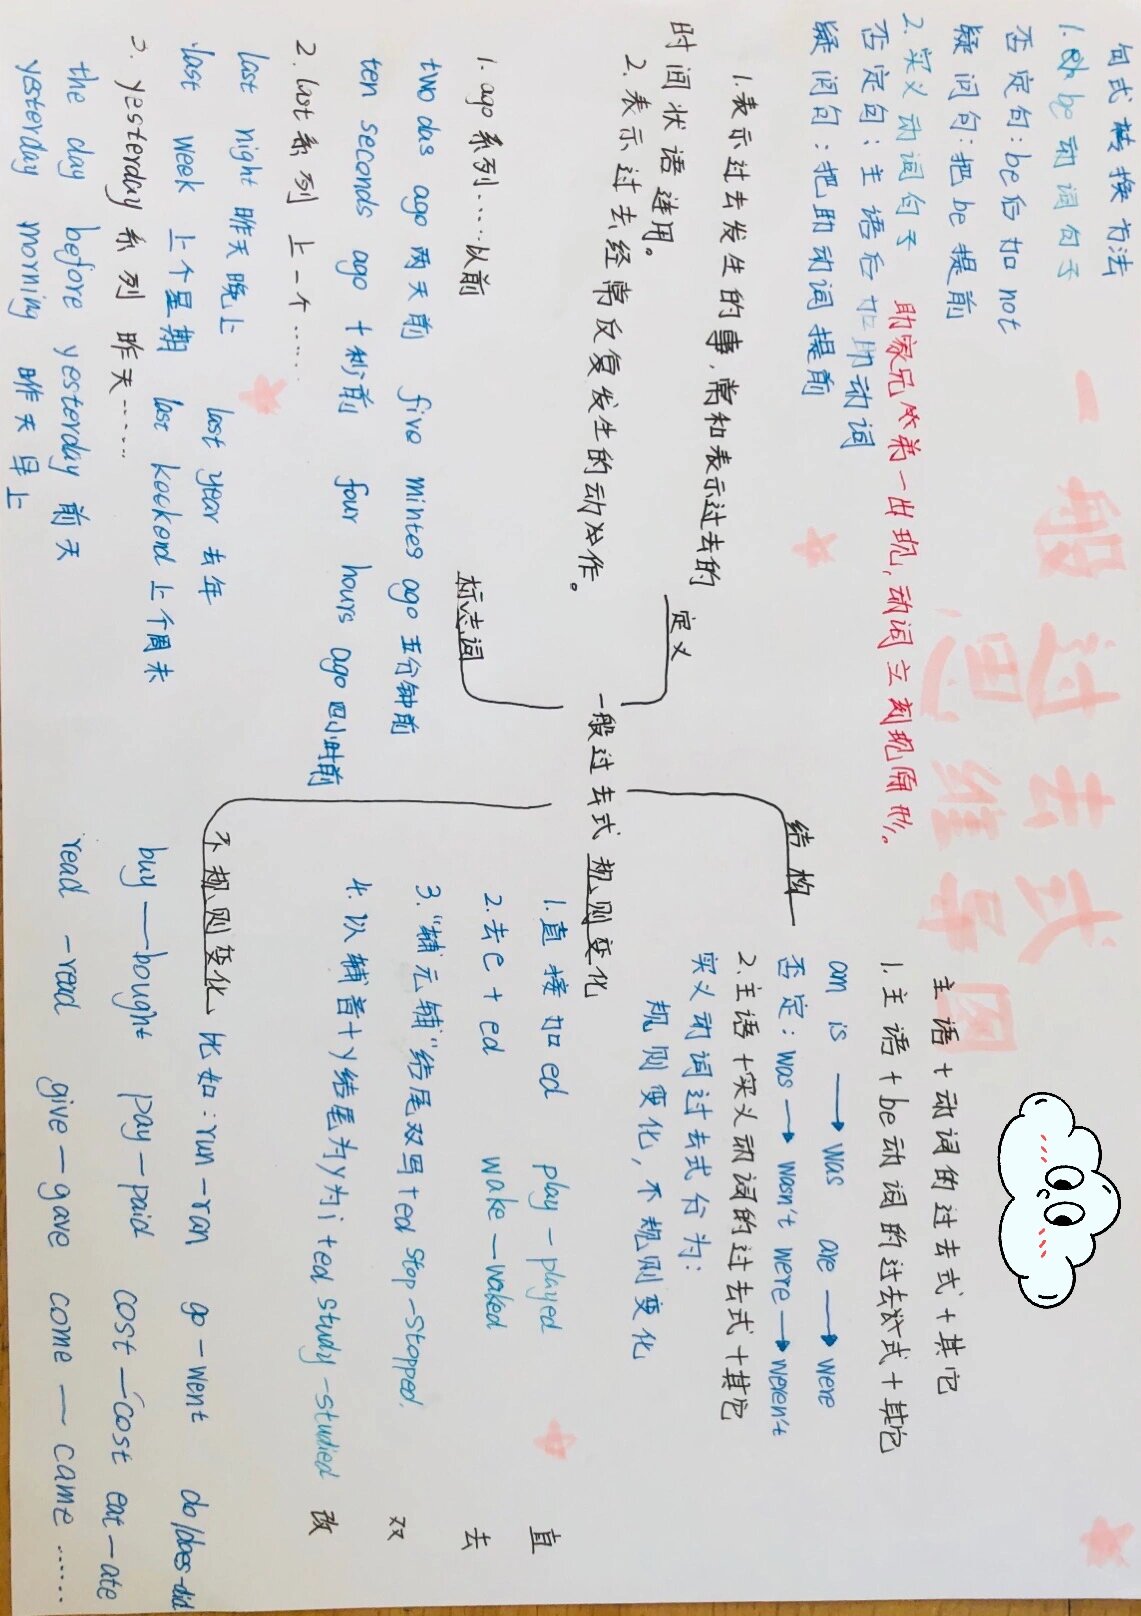 一般过去式
思维导图
句式转换方法
1. be动词句子
否定句:be后加not
疑问句:把be提前
2. 实义动词句子
否定句:主语后加助动词
疑问句:把助动词提前
助家兄弟一出现,动词立刻现原形。
定义
1. 表示过去发生的事,常和表示过去的
时间状语连用。
2. 表示过去经常反复发生的动作。
标志词
1. ago系列……以前
two das ago 两天前 five mintes ago 五分钟前
ten seconds ago 十秒前 four hours ago 四小时前
2. last系列 上一个……
last night 昨天晚上 last year 去年
last week 上个星期 last 上个周末
3. yesterday系列 昨天……
the day before yesterday 前天
yesterday morning 昨天早上
一般过去式
结构
主语+动词的过去式+其它
1. 主语+be动词的过去式+其它
am is → was are → were
否定:was → wasn't were → weren't
2. 主语+实义动词的过去式+其它
实义动词过去式分为:
规则变化,不规则变化
规则变化
1. 直接加ed play-played 直
2. 去e+ed wake-waked 去
3. "辅元辅"结尾双写+ed stop-stopped. 双
4. 以辅音+y结尾为y为i+ed study-studied 改
不规则变化 比如:run-ran go-went do/does-did
buy—bought pay-paid cost-cost eat-ate
read-read give-gave come-came……